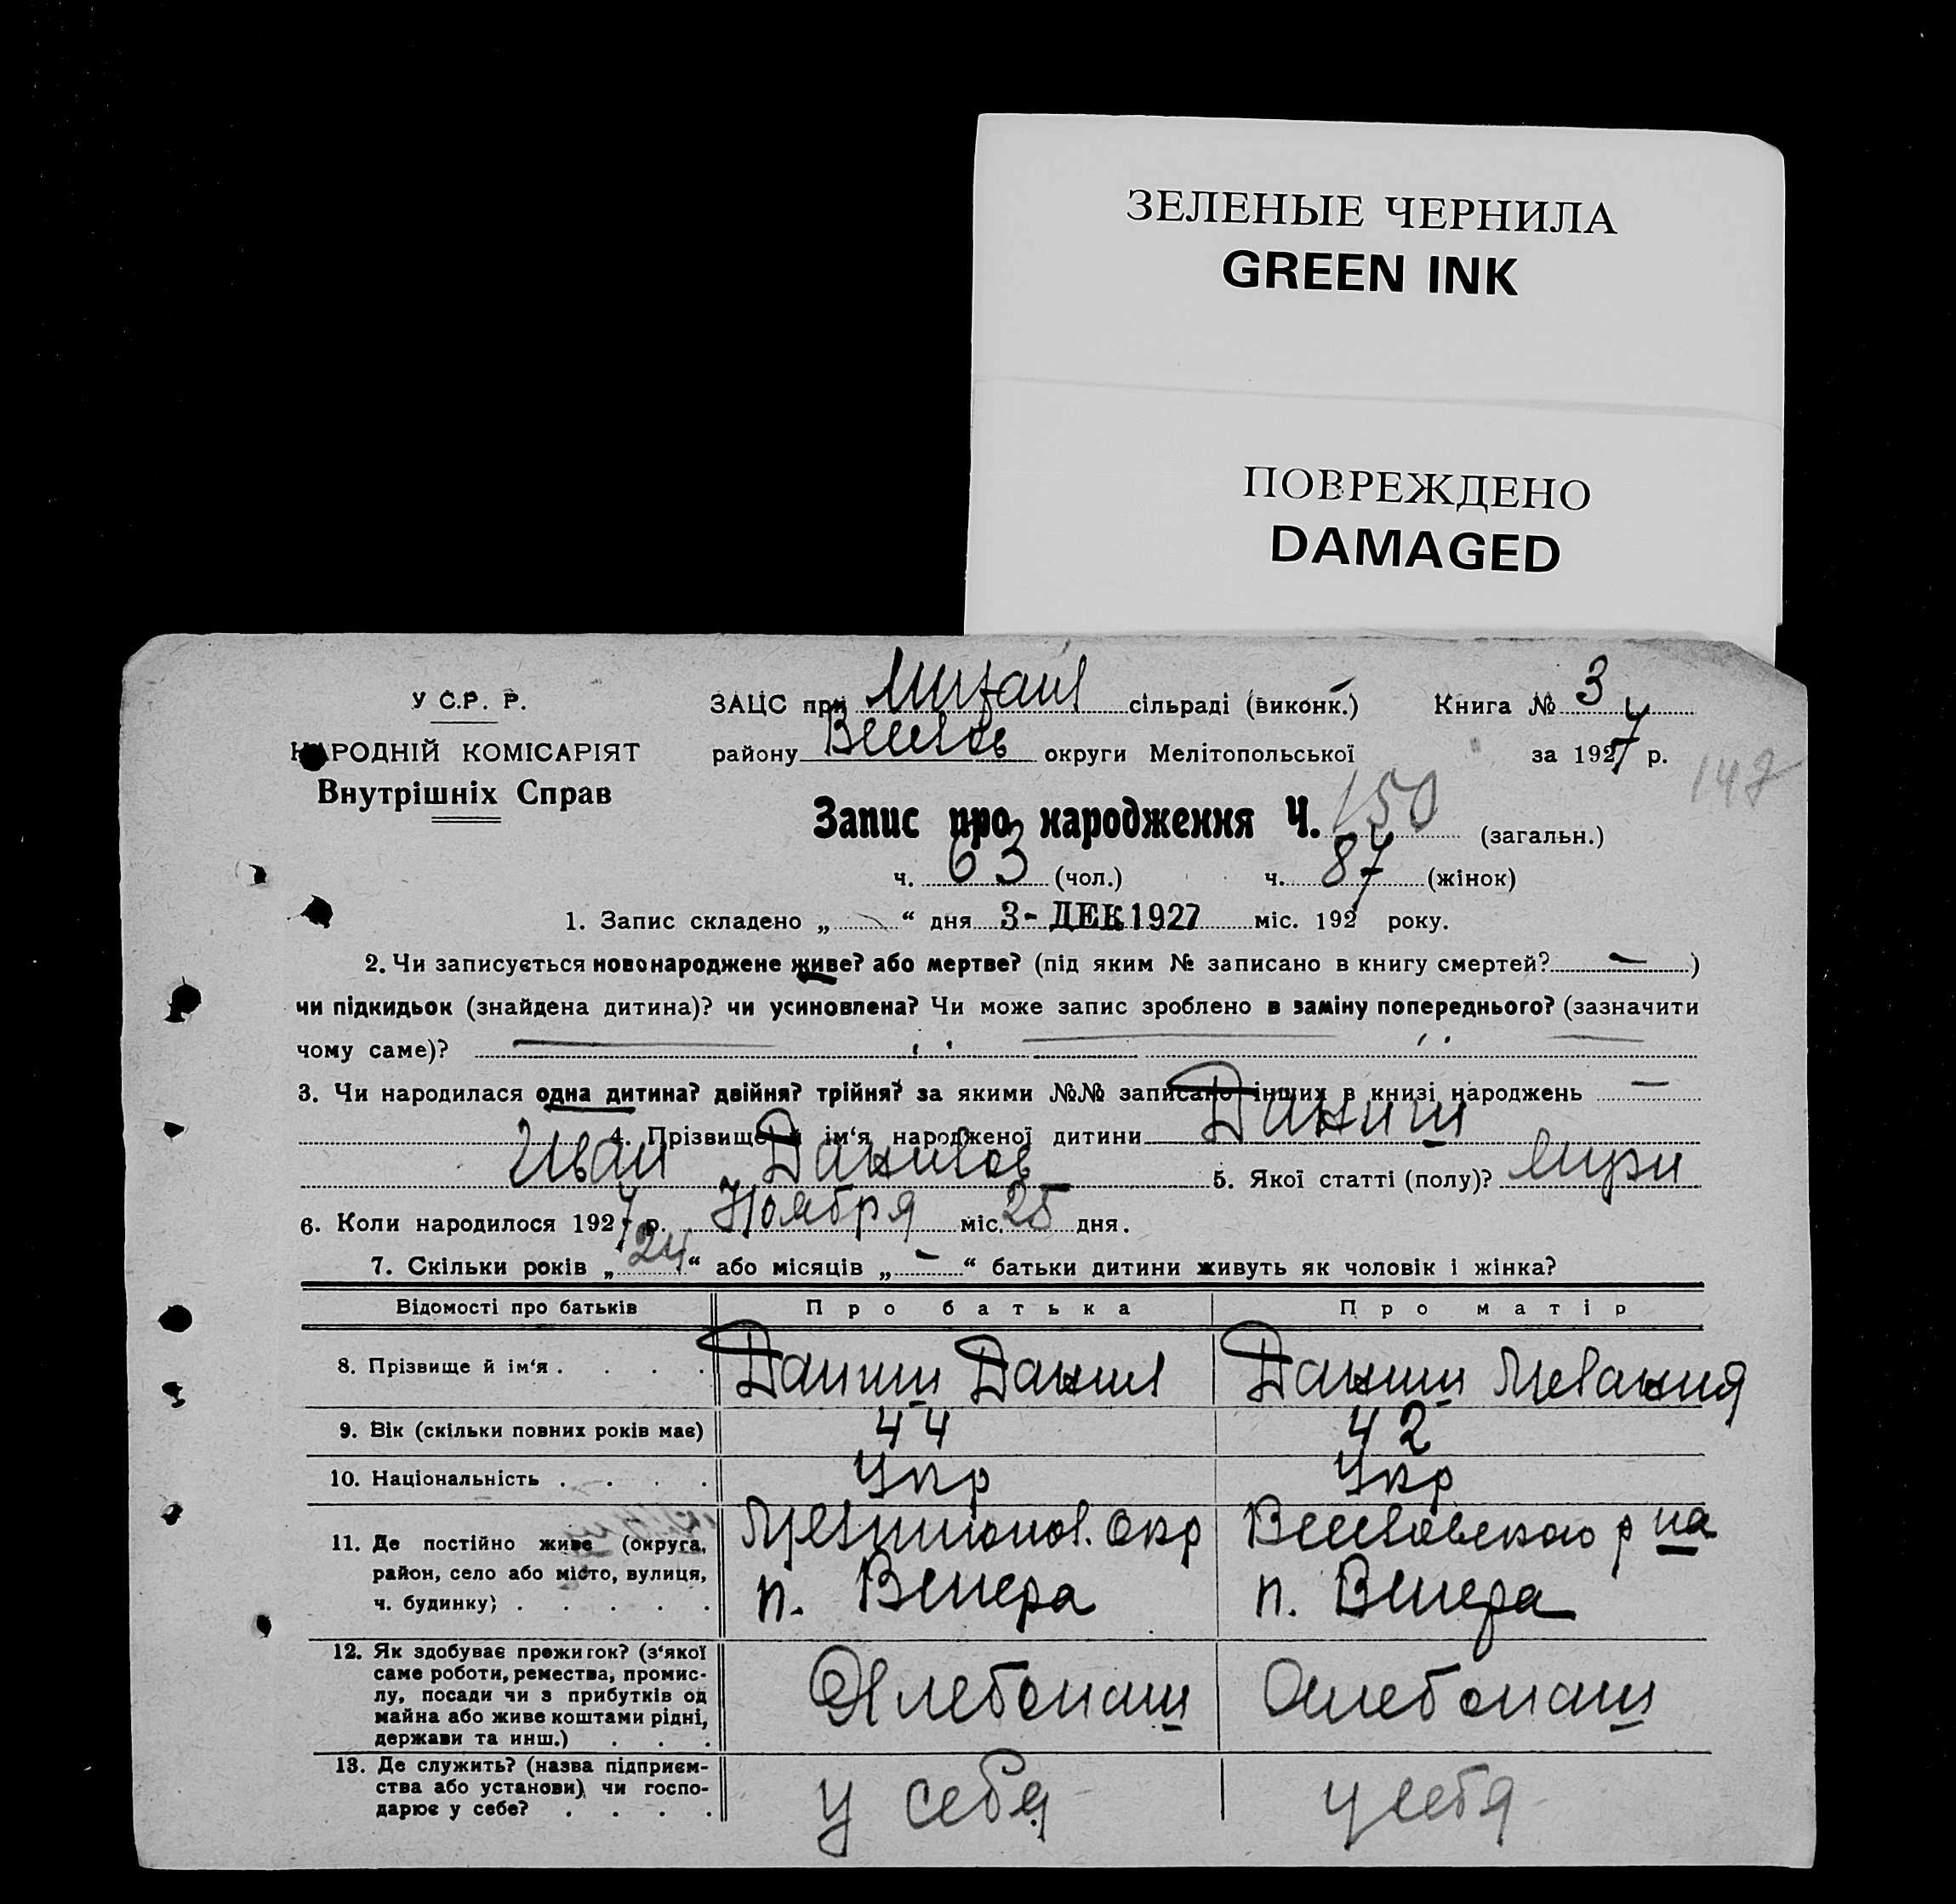 ЗЕЛЕНЫЕ ЧЕРНИЛА
GREEN INK
ПОВРЕЖДЕНО
DAMAGED
У С.Р. Р.
НАРОДНІЙ КОМІСАРІЯТ
Внутрішніх Справ
ЗАЦС при Михайл сільраді (виконк.) Книга № 3
району Веселов округи Мелітопольської за 1927 р.
147
Запис про народження Ч. 150 (загальн.)
ч. 63 (чол.) ч. 87 (жінок)
1. Запис складено „ “ дня 3- ДЕК 1927 міс. 192 року.
2. Чи записується новонароджене живе? або мертве? (під яким № записано в книгу смертей? — )
чи підкидьок (знайдена дитина)? чи усиновлена? Чи може запис зроблено в заміну попереднього? (зазначити
чому саме)?
3. Чи народилася одна дитина? двійня? трійня? за якими №№ записано інших в книзі народжень —
4. Прізвище й ім‘я народженої дитини Даниш
Иван Данилов 5. Якої статті (полу)? Мужи
6. Коли народилося 1927 р. Ноября міс. 25 дня.
7. Скільки років „ 24 “ або місяців „ — “ батьки дитини живуть як чоловік і жінка?
Відомості про батьків Про батька Про матір
8. Прізвище й ім‘я . . . . Даниш Данил Даниш Мелания
9. Вік (скільки повних років має) 44 42
10. Національність . . . . Укр Укр
11. Де постійно живе (округа, Мелитопол. окр Веселовского р на
район, село або місто, вулиця, п. Венера п. Венера
ч. будинку) . . . . .
12. Як здобуває прожиток? (з‘якої
саме роботи, ремества, промис-
лу, посади чи з прибутків од Хлебопаш Хлебопаш
майна або живе коштами рідні,
держави та инш.) . . .
13. Де служить? (назва підприєм-
ства або установи) чи госпо- у себя у себя
дарює у себе? . . . .